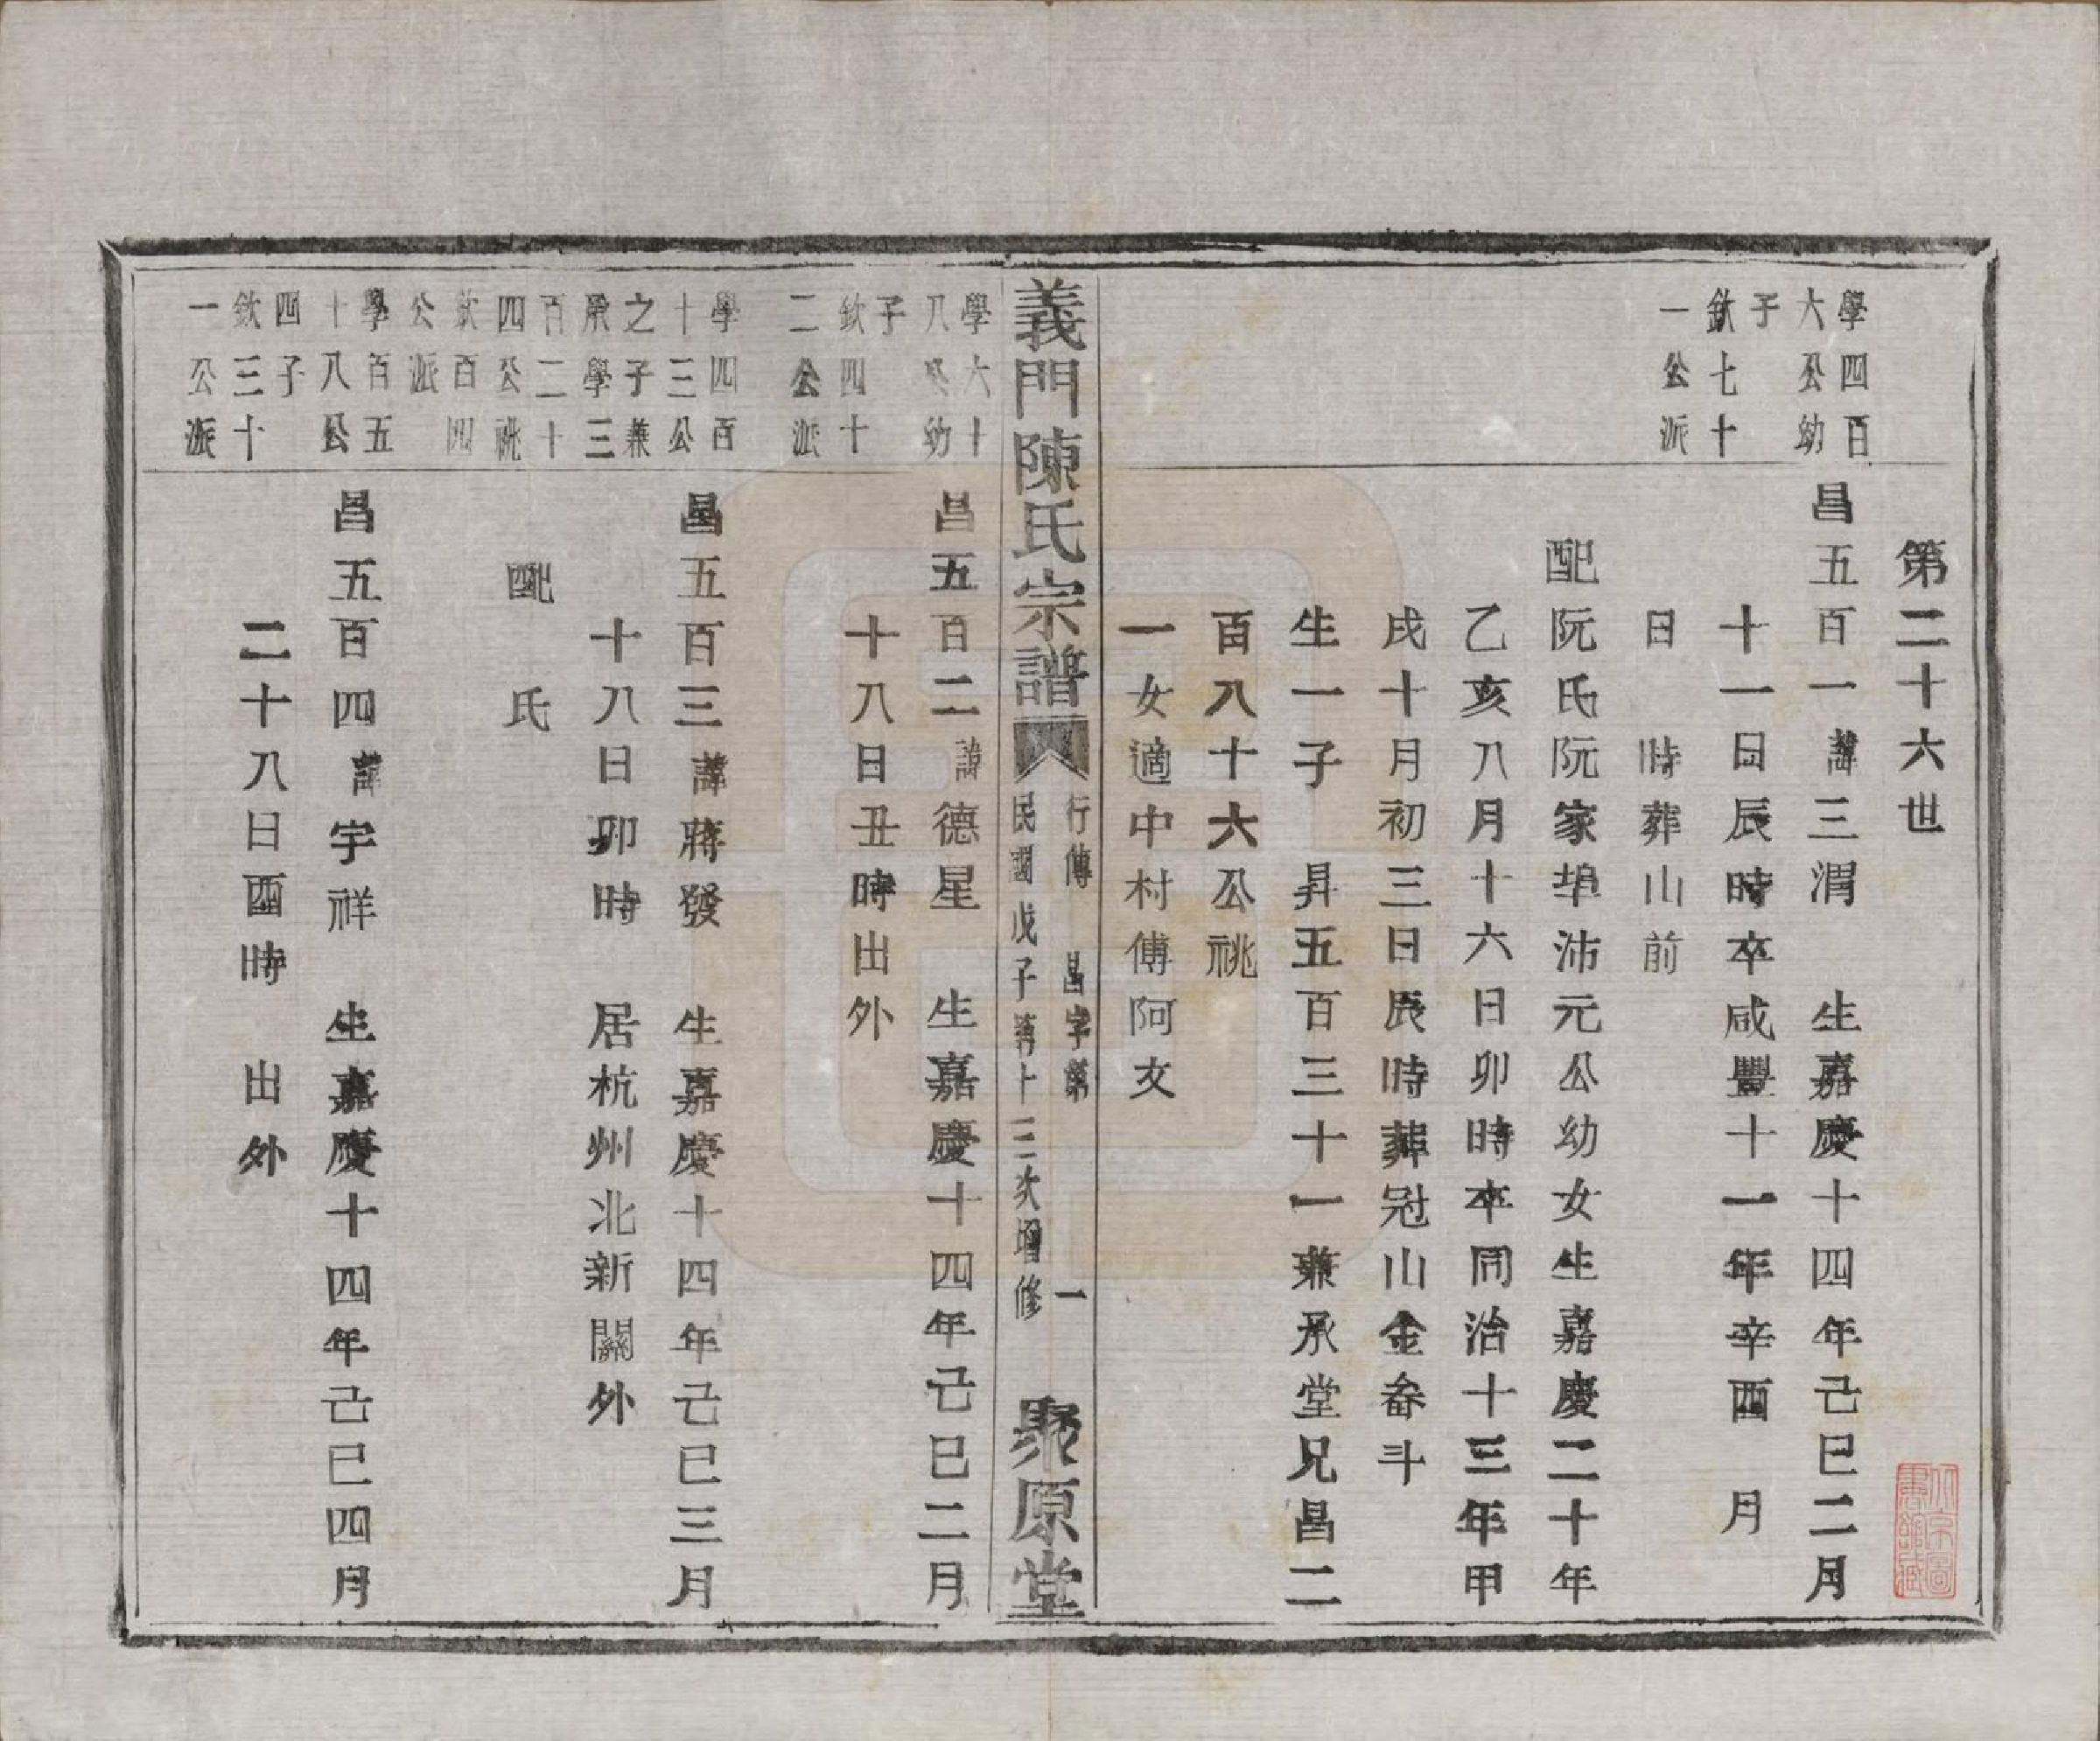 第二十六世
學四百
六公幼
子
欽七十
一公派
昌五百一 諱三渭 生嘉慶十四年己巳二月
十一日辰時卒咸豐十一年辛酉 月
日 時葬山前
配阮氏阮家埠沛元公幼女生嘉慶二十年
乙亥八月十六日卯時卒同治十三年甲
戌十月初三日辰時葬冠山金畚斗
生一子 昇五百三十一兼承堂兄昌二
百八十六公祧
一女適中村傅阿友
義門陳氏宗譜
行傳 昌字第 一
民國戊子第十三次增修
聚原堂
學六十
八公幼
子
欽四十
二公派
昌五百二 諱德星 生嘉慶十四年己巳二月
十八日丑時出外
學四百
十三公
之子兼
承學三
百二十
四公祧
欽百四
公派
昌五百三 諱蔣發 生嘉慶十四年己巳三月
十八日卯時 居杭州北新關外
配 氏
學百五
十八公
四子
欽三十
一公派
昌五百四 諱宇祥 生嘉慶十四年己巳四月
二十八日酉時 出外